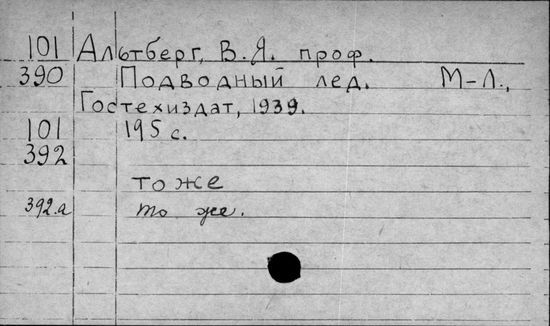 101 Альтберг, В.Я. проф.
390 Подводный лед. М-Л.,
Гостехиздат, 1939.
101 195 с.
392
то же
392.а то же.